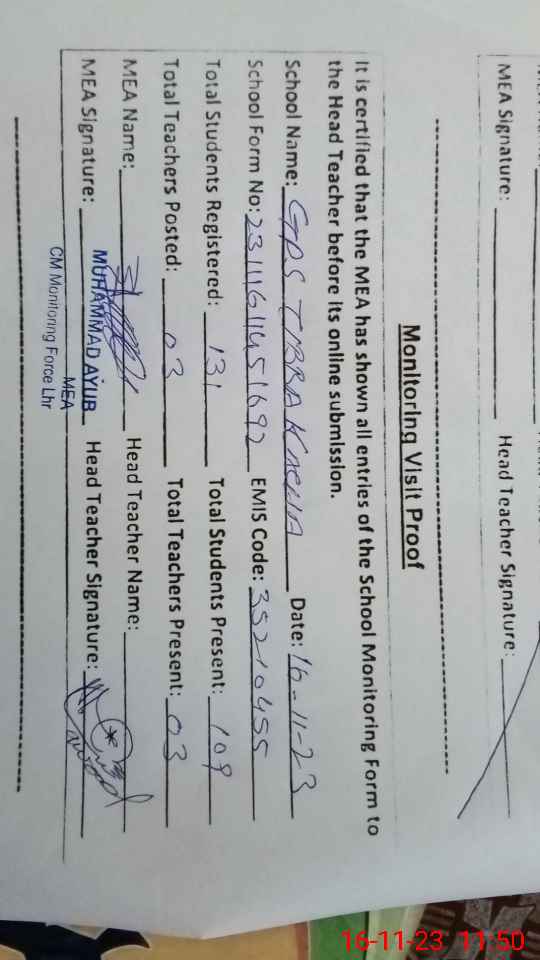 MEA Signature: Head Teacher Signature:
Monitoring Visit Proof
It is certified that the MEA has shown all entries of the School Monitoring Form to
the Head Teacher before its online submission.
School Name: GPS TIBBA Date: 16-11-23
School Form No: EMIS Code: 35210455
Total Students Registered: 131 Total Students Present: 109
Total Teachers Posted: 03 Total Teachers Present: 03
MEA Name: Head Teacher Name:
MEA Signature: MUHAMMAD AYUB Head Teacher Signature:
MEA
CM Monitoring Force Lhr
16-11-23 11:50